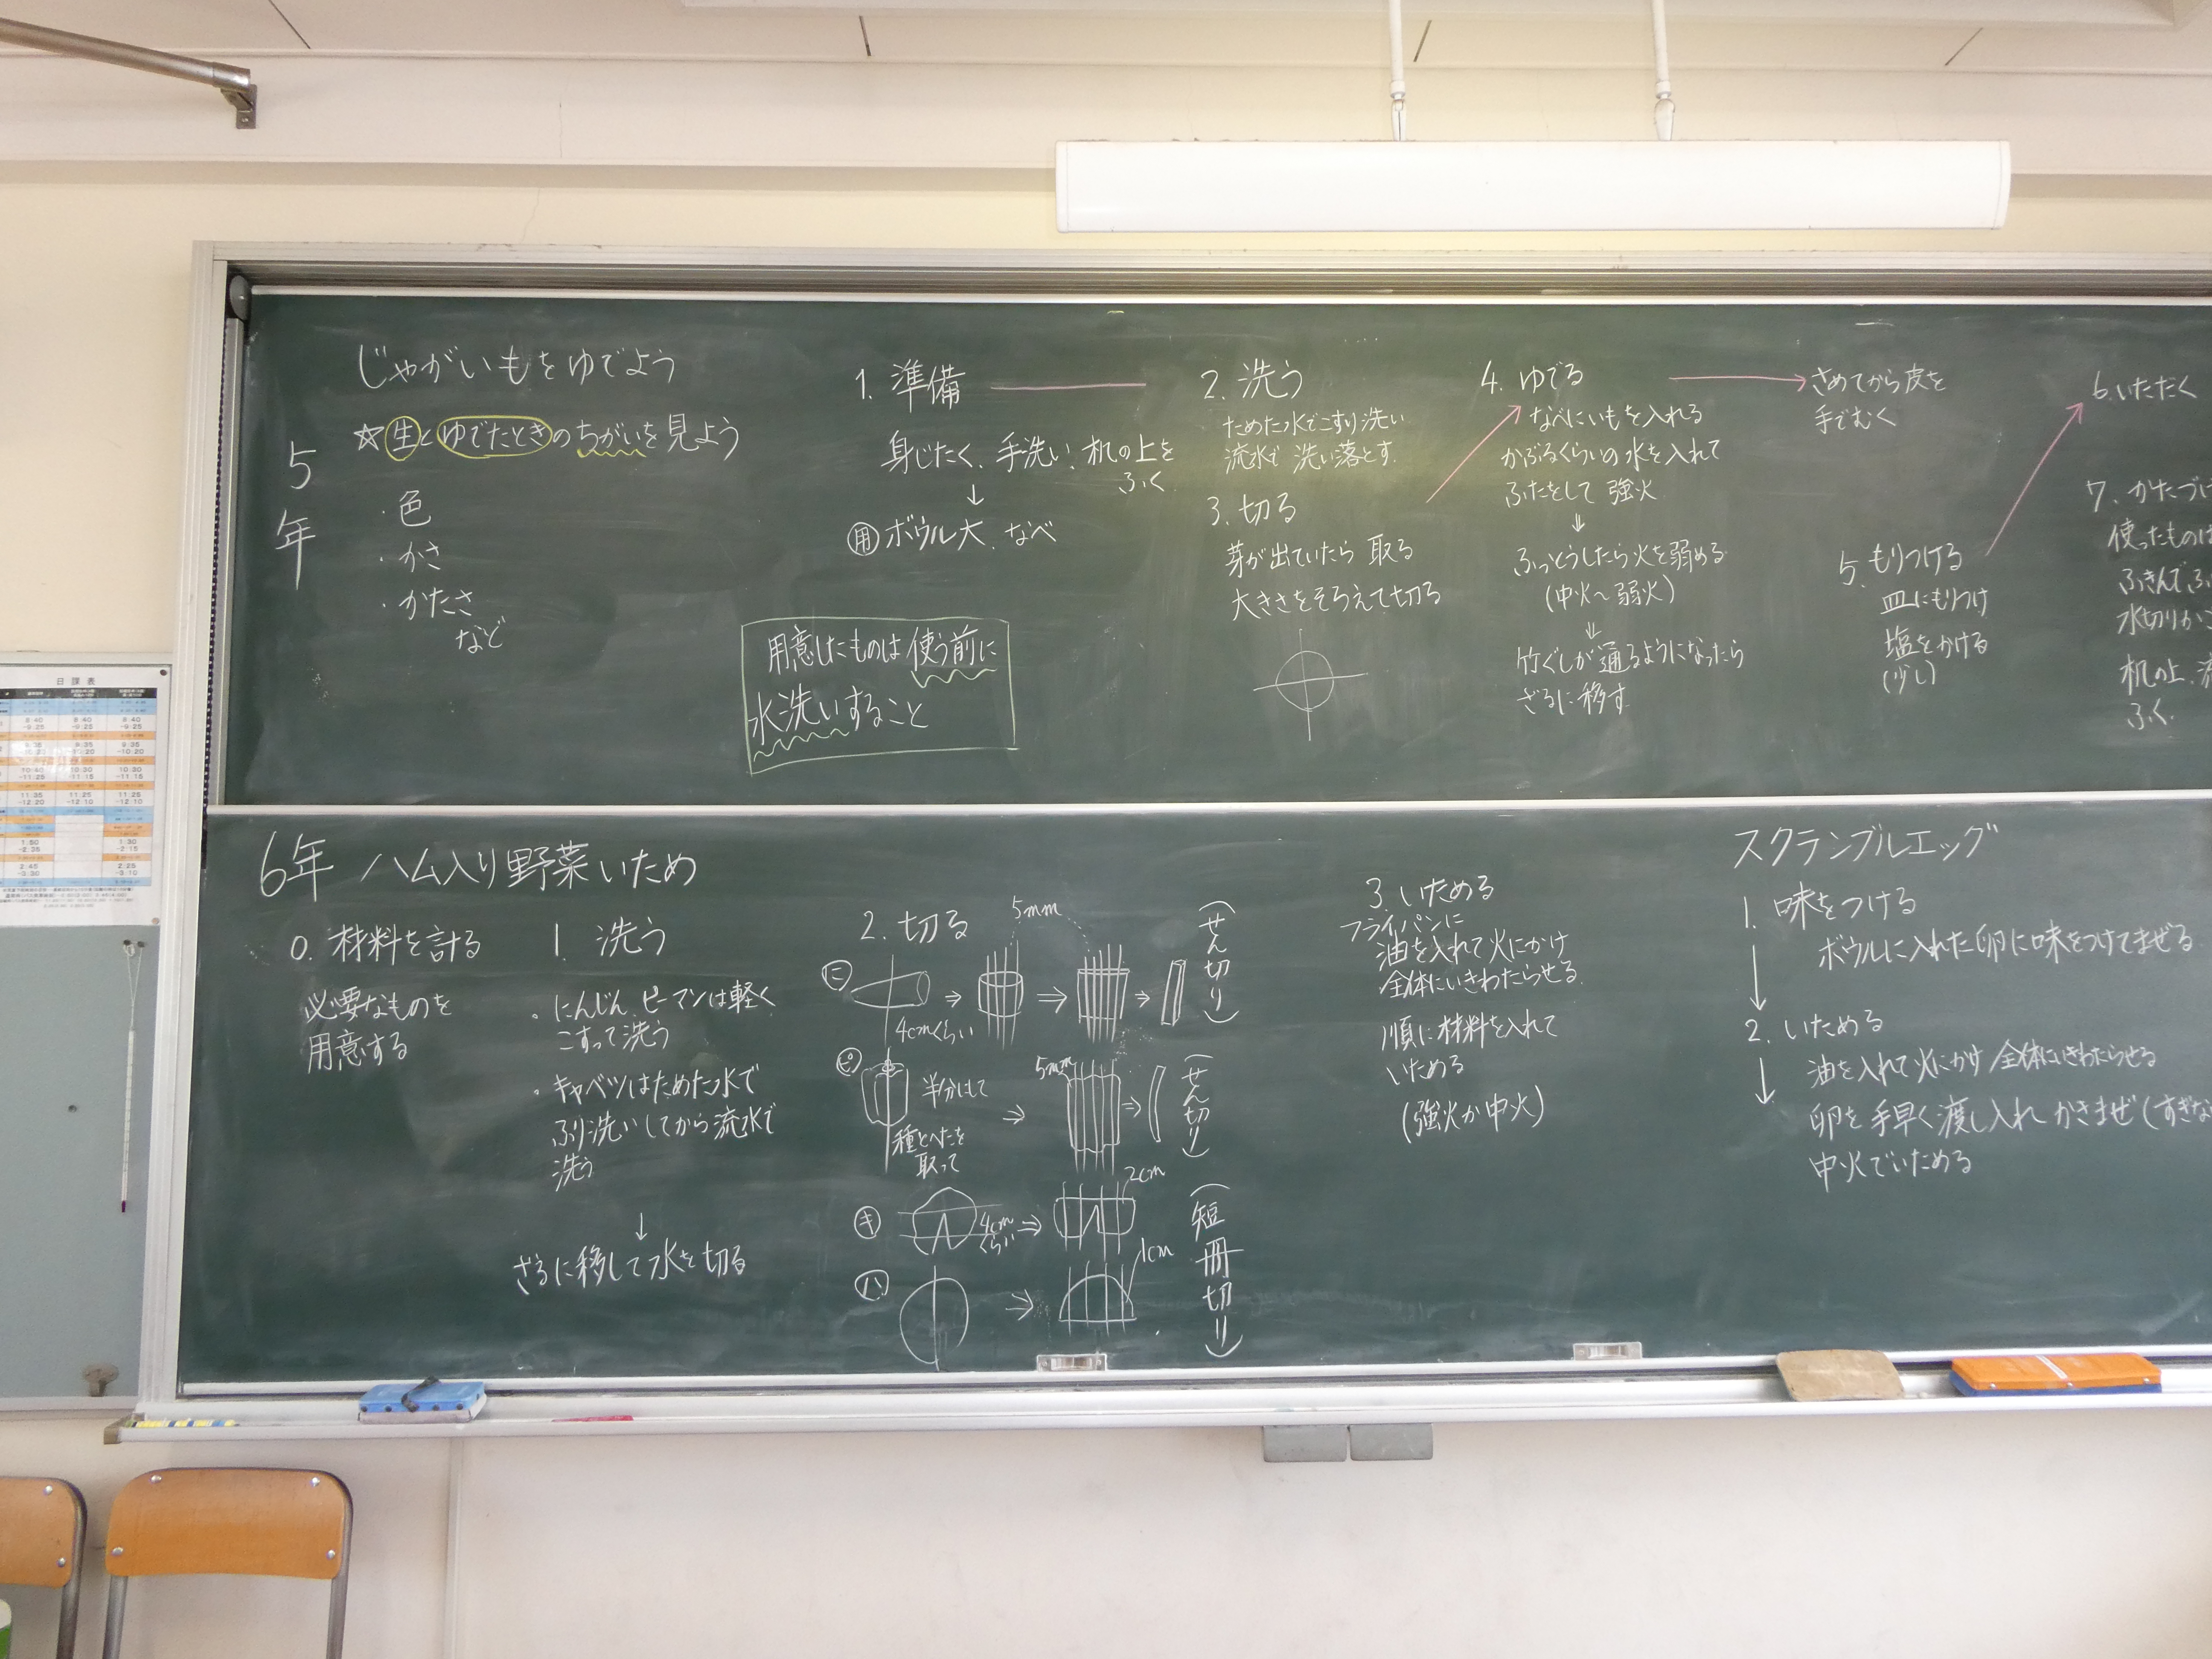 5年
じゃがいもをゆでよう
☆生とゆでたときのちがいを見よう
・色
・かさ
・かたさ
など
1. 準備
身じたく、手洗い、机の上を
ふく
↓
用 ボウル大、なべ
用意したものは使う前に
水洗いすること
2. 洗う
ためた水でこすり洗い
流水で洗い落とす
3. 切る
芽が出ていたら取る
大きさをそろえて切る
4. ゆでる
なべにいもを入れる
かぶるくらいの水を入れて
ふたをして強火
⇓
ふっとうしたら火を弱める
(中火〜弱火)
⇓
竹ぐしが通るようになったら
ざるに移す
さめてから皮を
手でむく
5. もりつける
皿にもりつけ
塩をかける
(少し)
6. いただく
7. かたづけ
使ったものは
ふきんでふ
水切りかご
机の上、流
ふく
6年 ハム入り野菜いため
0. 材料を計る
必要なものを
用意する
1. 洗う
・にんじん、ピーマンは軽く
こすって洗う
・キャベツはためた水で
ふり洗いしてから流水で
洗う
↓
ざるに移して水を切る
2. 切る
5mm
ニ
4cmくらい
(せん切り)
ピ
半分にして
種とへたを
取って
5mm
(せん切り)
キ
4cm
くらい
2cm
ハ
1cm
(短冊切り)
3. いためる
フライパンに
油を入れて火にかけ
全体にいきわたらせる
順に材料を入れて
いためる
(強火か中火)
スクランブルエッグ
1. 味をつける
ボウルに入れた卵に味をつけてまぜる
2. いためる
油を入れて火にかけ全体にいきわたらせる
卵を手早く渡し入れかきまぜ(すぎな
中火でいためる
日課表
8:40 8:40 8:40
-9:25 -9:25 -9:25
9:35 9:35 9:35
-10:20 -10:20 -10:20
10:40 10:30 10:30
-11:25 -11:15 -11:15
11:35 11:25 11:25
-12:20 -12:10 -12:10
1:50 1:30
-2:35 -2:15
2:45 2:25
-3:30 -3:10